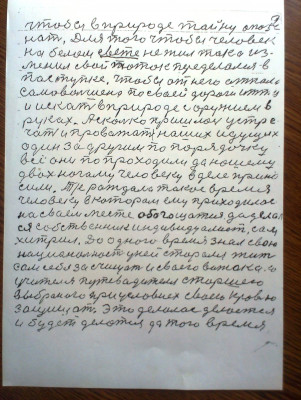 чтобы в природе тайну опозе
нат, Для того чтобы человек
на белом свете не жил так а из
менил свой поток пределался в
поступке. чтобы от него отпало
самовольшено по своей дороги итти
и искат в природе с оружием в
руках. А сколко пришлось устре
чат и провожат наших идущих
один за другим по порядочку
все они по проходили данному
двах ногаму человеку в деле прино
сили. такое время
человеку в котором ему приходилос
на своем месте обогощатся да делал
ся собственник индивидуалист, сам
хитрил. До одного время знал свою
национальность у ней старался жит
сам себя защищат и своего
учителя путеводителя старшего
выбраного при условиех своею кровю
защищат. Это делалос делается
и будет делатся до того время